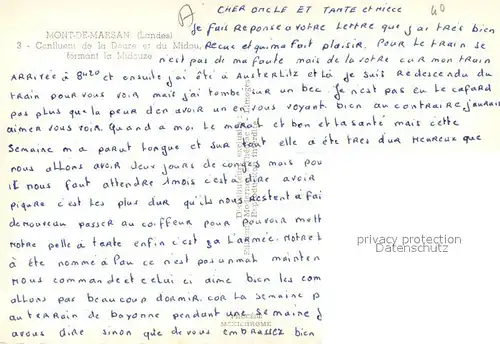 CHER ONCLE ET TANTE et niece
40
A
Je fais reponse a votre lettre que j'ai très bien
MONT-DE-MARSAN (Landes)
3 - Confluent de la Douze et du Midou,
formant la Midouze
Recue et qui m'a fait plaisir. Pour le train se
n'est pas de ma faute mais de la votre car mon train
ARRIVÉE à 8h20 et ensuite j'ai été à AUSTERLITZ et là je suis redescendu du
train pour vous voir mais j'ai tombé sur un bec. Je n'est pas eu le cafard
pas plus que la peur d'en avoir un en vous voyant bien au contraire j'aurais
aimer vous voir. Quand a moi le moral et bon et la santé mais cette
Semaine m'a parut longue et surtout elle a été tres dur Heureux que
nous allons avoir deux jours de congés mais pou
il nous faut attendre 1 mois c'est à dire avoir
piqure c'est les plus dur qu'ils nous restent à fai
de nouveau passer au coiffeur pour pouvoir mett
notre pelle à tarte enfin c'est ça l'armée. Notre l
à été nommé à Pau ce n'est pas un mal mainten
nous commande et celui ci aime bien les com
allons pas beaucoup dormir. car la semaine p
au terrain de bayonne pendant une semaine j
avous dire sinon que de vous embrassez bien
privacy protection
ansichtskarten-center.de
MEXICHROME